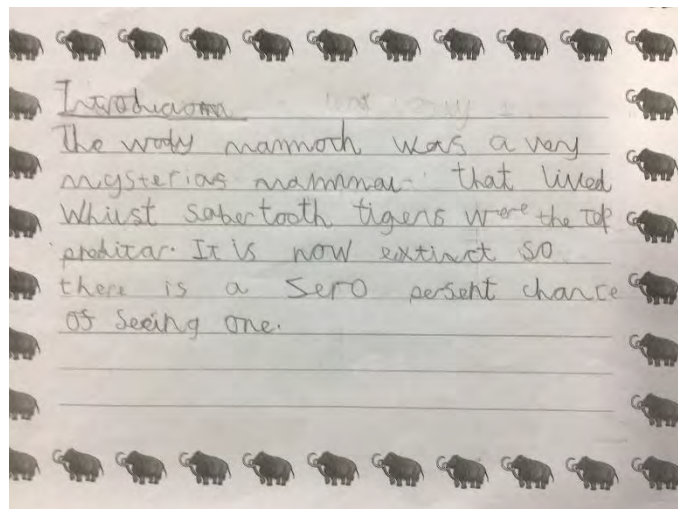 Introduction
The wooly mammoth was a very
mysterias mammal that lived
Whilst saber tooth tigers were the Top
preditar. It is now extinct so
there is a sero persent chance
of seeing one.